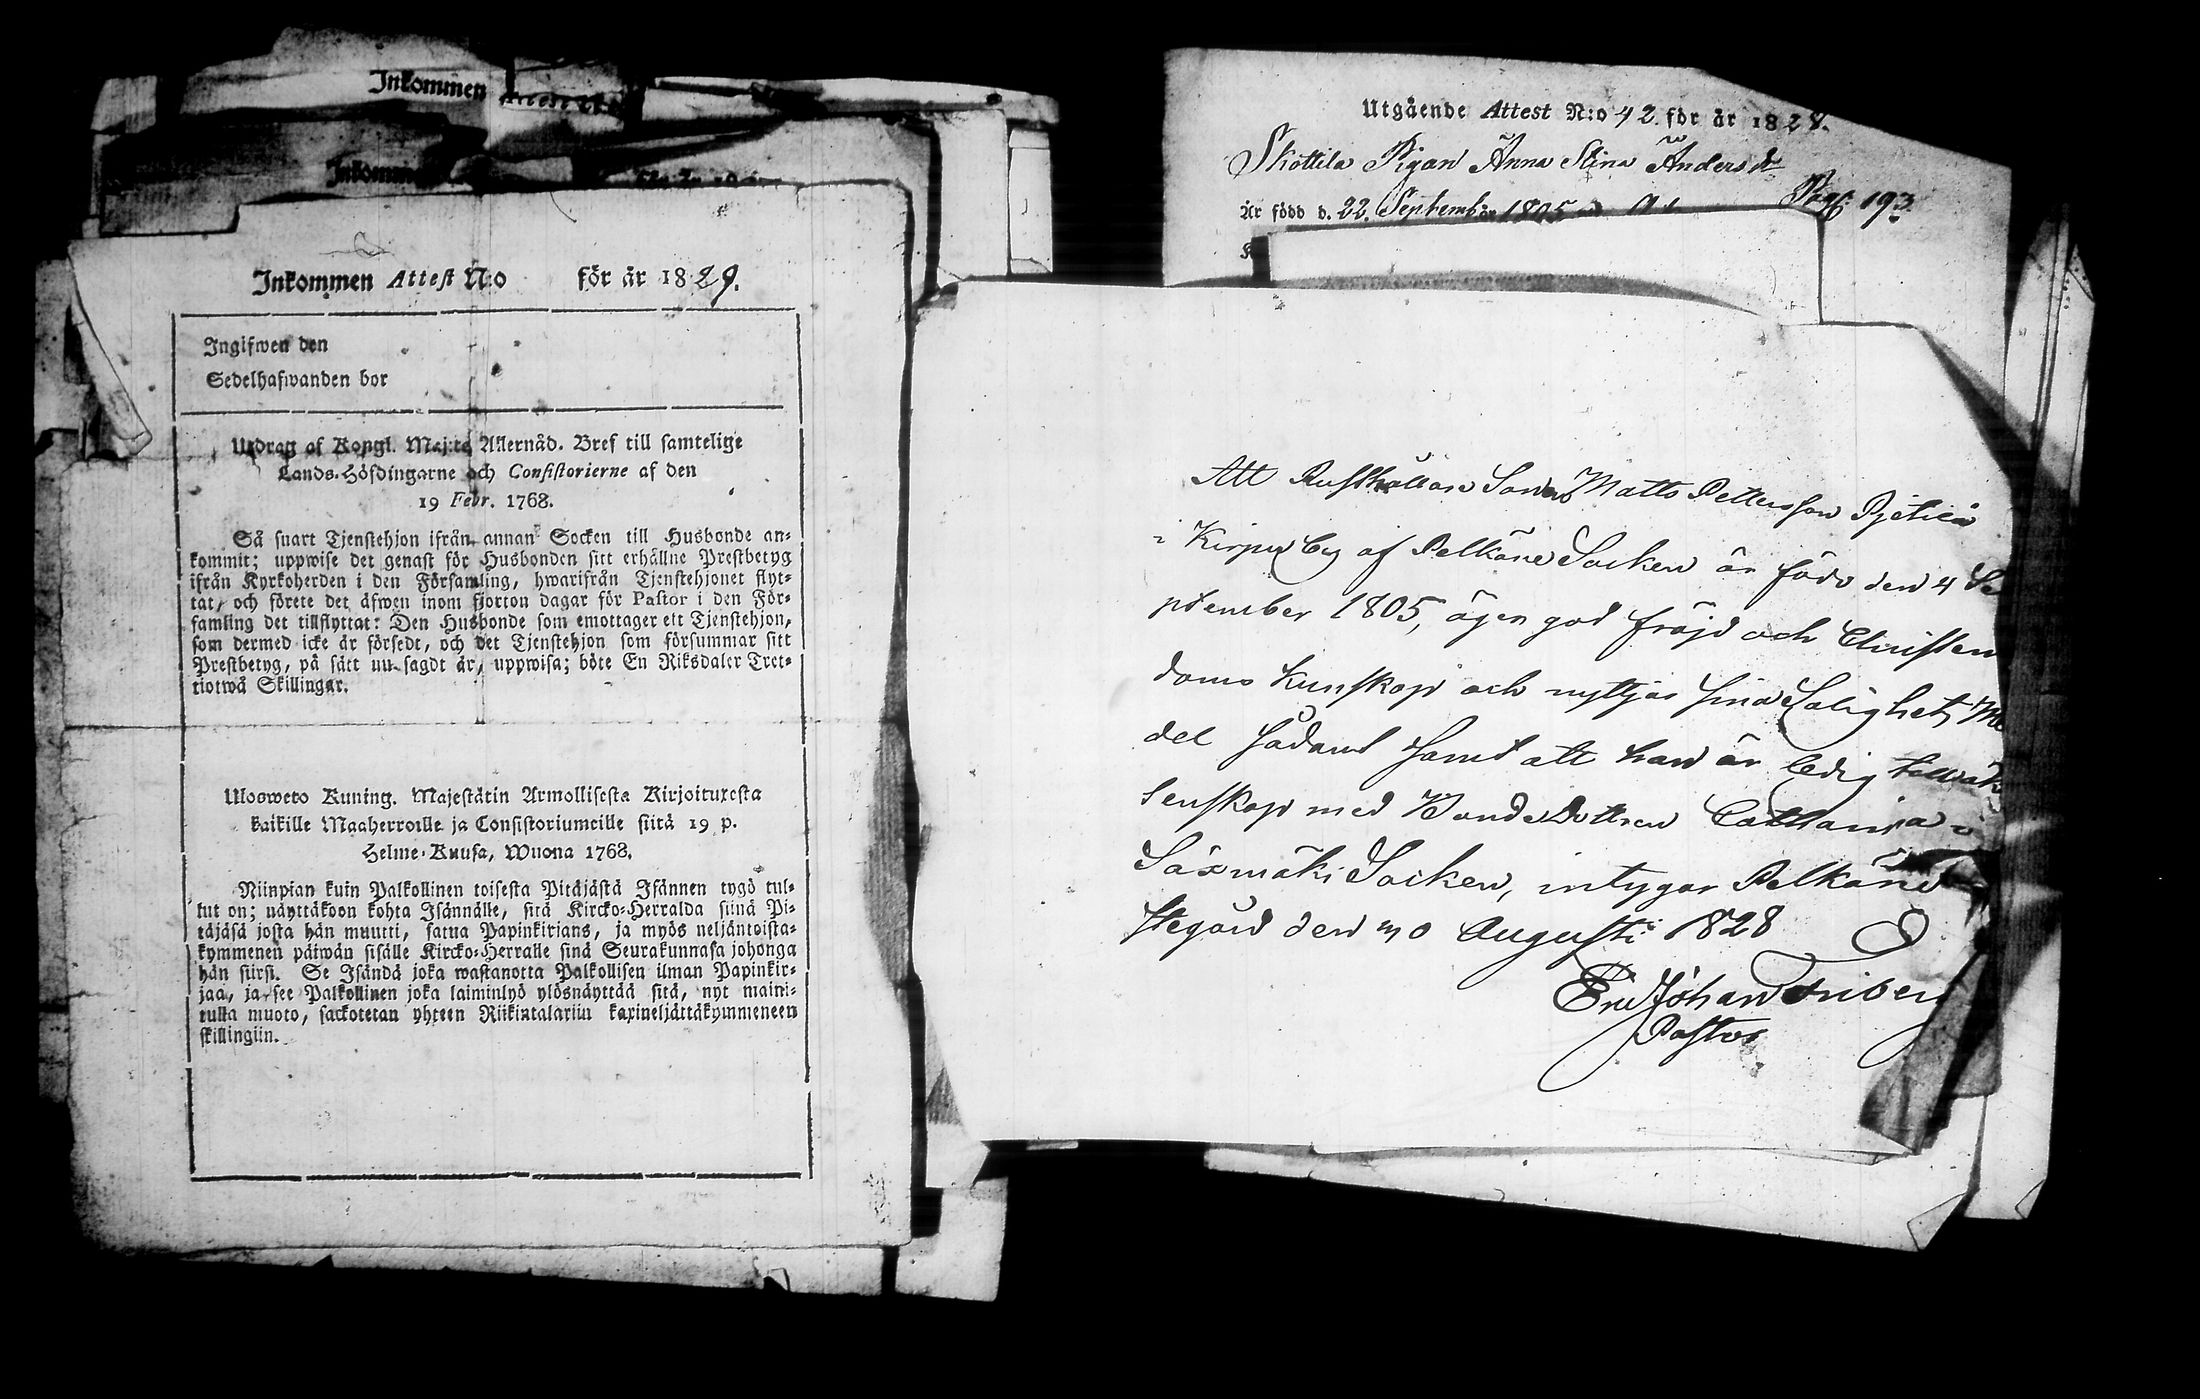 Inkommen Attest
Inkommen
Inkommen Attest N:o för år 1829.
Ingifwen den
Sedelhafwanden bor
Utdrag af Kongl. Maj:ts Allernåd. Bref till samtelige
Lands-Höfdingarne och Consistorierne af den
19 Febr. 1768.
Så snart Tjenstehjon ifrån annan Socken till Husbonde an-
kommit; uppwise det genast för Husbonden sitt erhållne Prestbetyg
ifrån Kyrkoherden i den Församling, hwarifrån Tjenstehjonet flyt-
tat, och förete det äfwen inom fjorton dagar för Pastor i den För-
samling det tillflyttat: Den Husbonde som emottager ett Tjenstehjon,
som dermed icke är försedt, och det Tjenstehjon som försummar sitt
Prestbetyg, på sätt nu sagdt är, uppwisa; böte En Riksdaler Tret-
tiotwå Skillingar.
Ulosweto Kuning. Majestätin Armollisesta Kirjoituxesta
kaikille Maaherroille ja Consistoriumeille siitä 19 p.
Helme-Kuusa, Wuona 1768.
Niinpian kuin Palkollinen toisesta Pitäjästä Isännen tygö tul-
lut on; näyttäköön kohta Isännälle, sitä Kircko-Herralda siinä Pi-
täjäsä josta hän muutti, satua Papinkirjans, ja myös neljäntoista-
kymmenen päiwän sisälle Kircko-Herralle sinä Seurakunnasa johonga
hän siirsi. Se Isändä joka wastanotta Palkollisen ilman Papinkir-
jaa, ja see Palkollinen joka laiminlyö ylösnäyttää sitä, nyt maini-
tulla muoto, sackotetan yhteen Riikintalariin kaxineljättäkymmeneen
skillingiin.
Utgående Attest N:o 42 för år 1828.
Skottila Pigan Anna Stina Andersdr
Pag. 193.
Är född d. 22 September 1805
Att Rusthållare Sonen Matts Pettersson Pjetilä
i Kirpu by af Pelkäne Socken är född den 4 Se
ptember 1805, äger god fräjd och Christen
doms kunskap och nyttjar sina Salighets Me
del sådant samt att han är ledig till äkt
tenskap med BondeDottren Catharina i
Säxmäki Socken, intygar Pelkäne
stegård den 30 Augusti 1828
Johan Friberg
Pastor